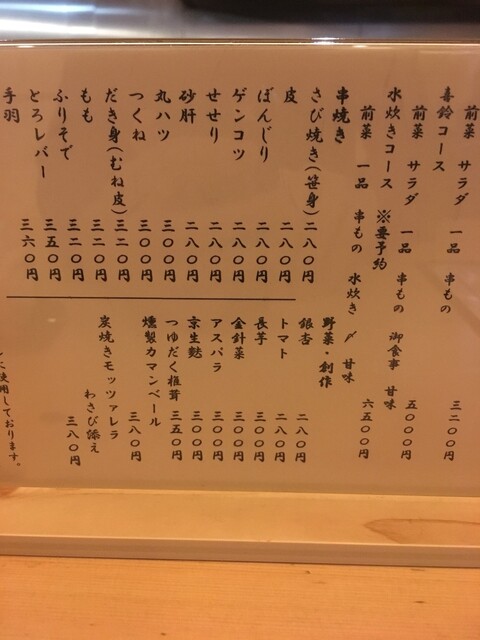 前菜 サラダ 一品 串もの 三二〇〇円
喜鈴コース
前菜 サラダ 一品 串もの 御食事 甘味 五〇〇〇円
水炊きコース ※要予約
前菜 一品 串もの 水炊き 〆 甘味 六五〇〇円
串焼き
さび焼き(笹身) 二八〇円
皮 二八〇円
ぼんじり 二八〇円
ゲンコツ 二八〇円
せせり 二八〇円
砂肝 二八〇円
丸ハツ 三〇〇円
つくね 三〇〇円
だき身(むね皮) 三二〇円
もも 三二〇円
ふりそで 三五〇円
とろレバー 三六〇円
手羽
野菜・創作
銀杏 二八〇円
トマト 二八〇円
長芋 三〇〇円
金針菜 三〇〇円
アスパラ 三〇〇円
京生麩 三〇〇円
つゆだく椎茸 三五〇円
燻製カマンベール 三八〇円
炭焼きモッツァレラ
わさび添え 三八〇円
使用しております。